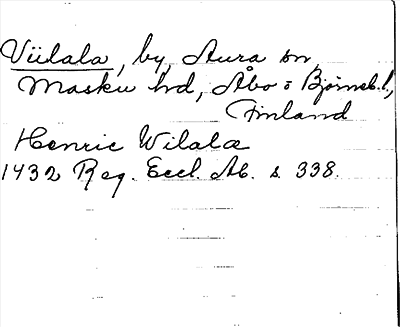 Viilala, by, Aura sn,
Masku hd, Åbo o Björneb. l.,
Finland
Henric Wilala
1432 Reg. Eccl. Ab. s. 338.